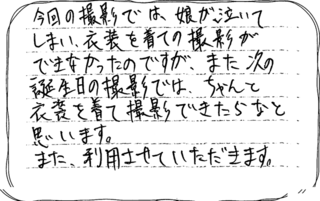 今回の撮影では、娘が泣いて
しまい、衣装を着ての撮影が
できなかったのですが、また次の
誕生日の撮影では、ちゃんと
衣装を着て撮影できたらなと
思います。
また、利用させていただきます。